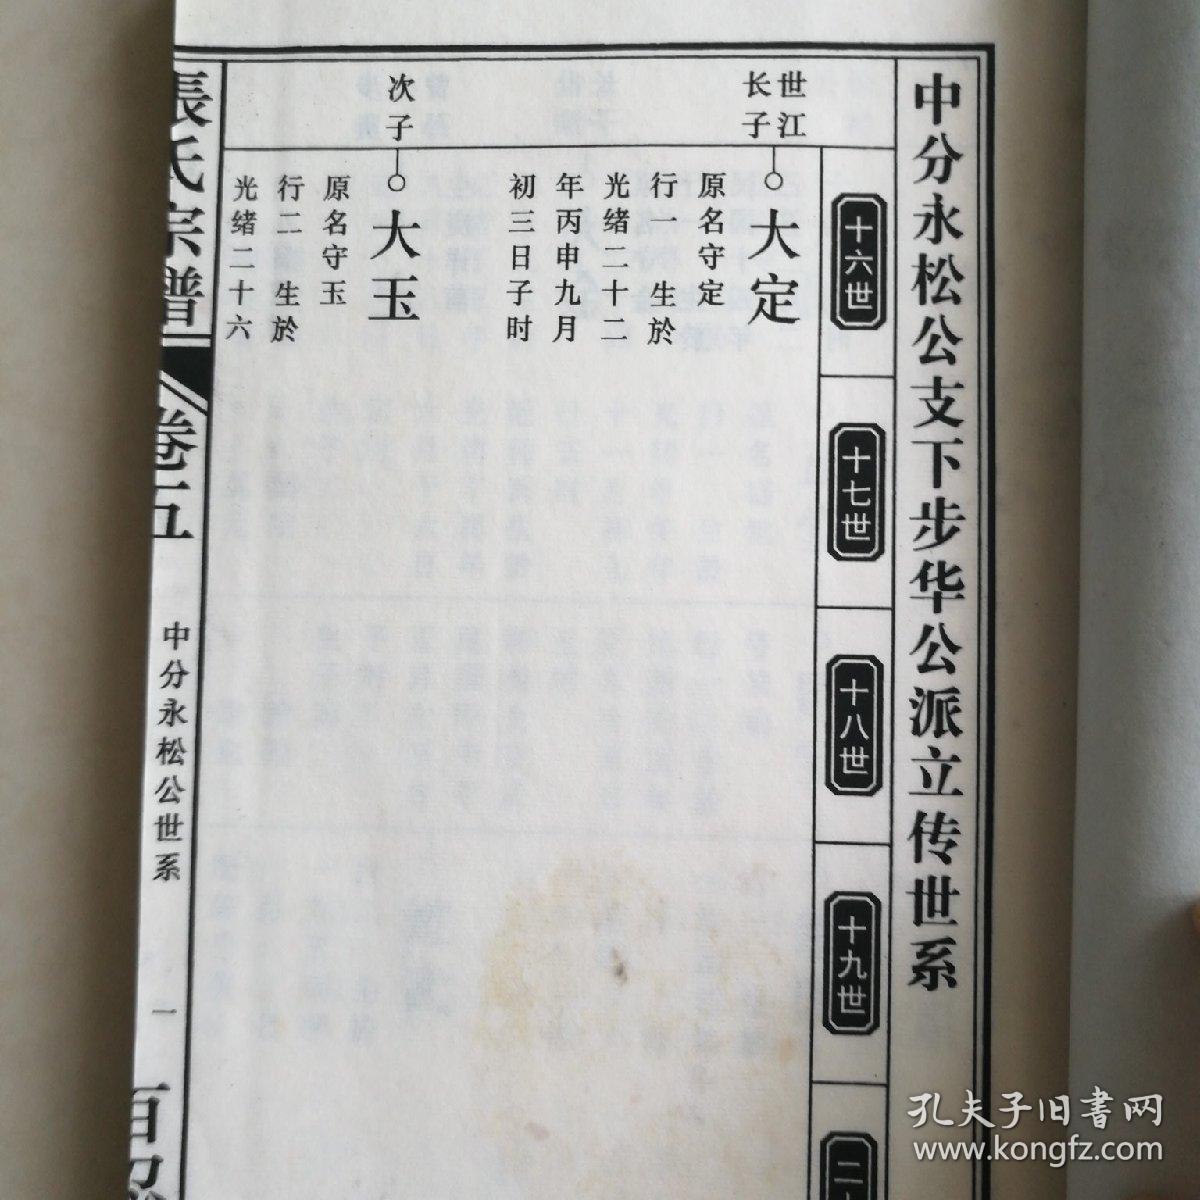 中分永松公支下步华公派立传世系
十六世
十七世
十八世
十九世
世江
长子
大定
原名守定
行一 生於
光绪二十二
年丙申九月
初三日子时
次子
大玉
原名守玉
行二 生於
光绪二十六
張氏宗譜
卷五
中分永松公世系
一
孔夫子旧书网
www.kongfz.com